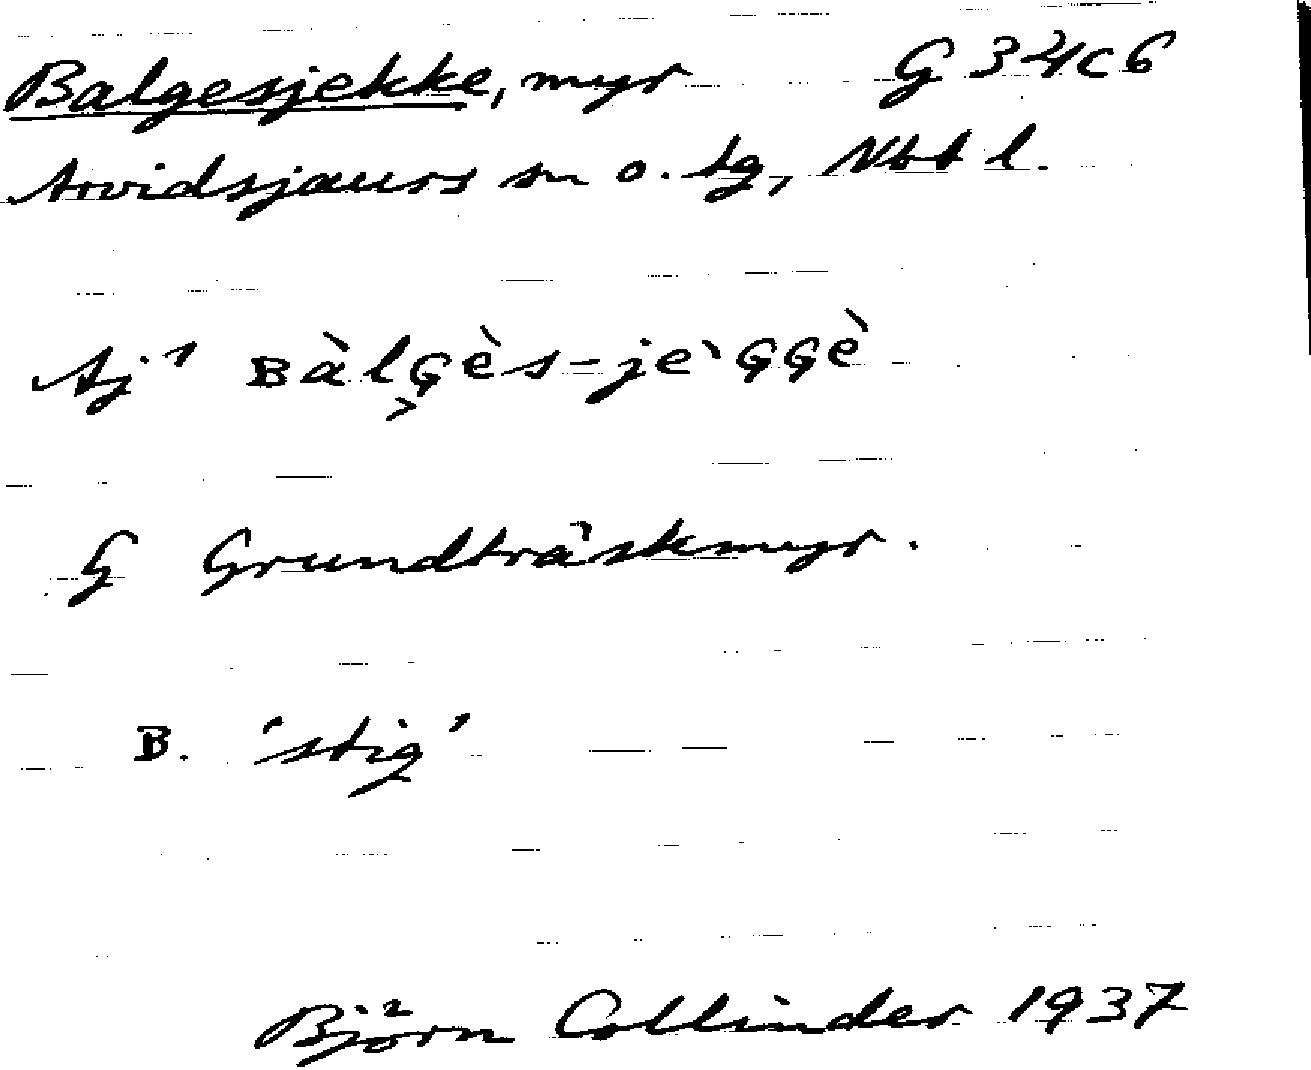 Balgesjekke, myr G 34c6
Arvidsjaurs sn o. tg, Nbt l.
Aj¹ ʙàlɢ̬ès-jeˋɢɢè
G Grundträskmyr.
B. 'stig'
Björn Collinder 1937